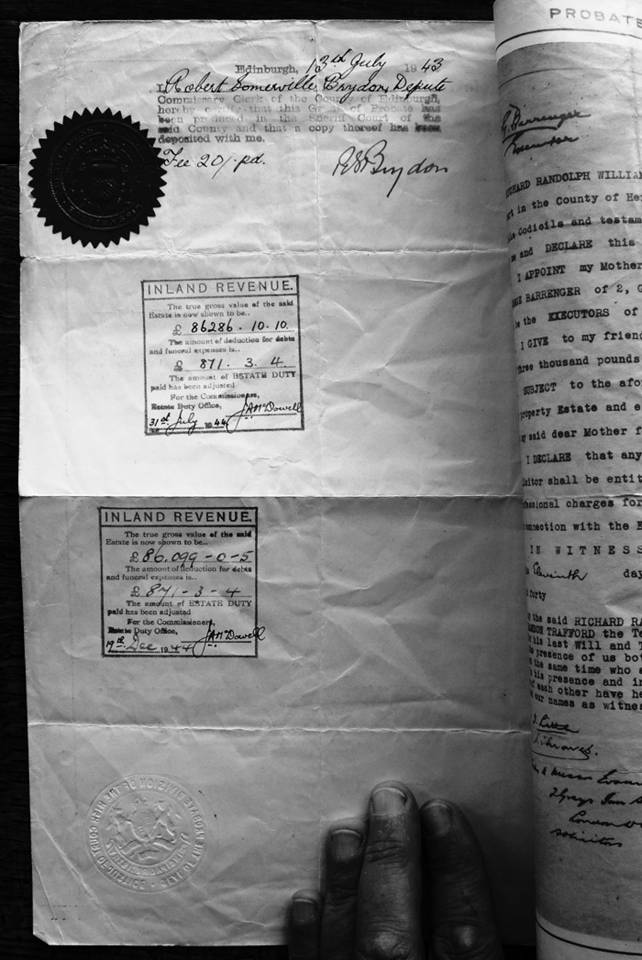 Edinburgh, 13th July 1943
I Robert Somerville Brydon, Depute
Commissary Clerk of the County of Edinburgh,
hereby certify that this Grant of Probate has
been produced in the Sheriff Court of the
said County and that a copy thereof has been
deposited with me.
Fee 20/- pd. RSBrydon
INLAND REVENUE.
The true gross value of the said
Estate is now shown to be..
£ 86286 . 10 . 10.
The amount of deduction for debts
and funeral expenses is..
£ 871 . 3 . 4.
The amount of ESTATE DUTY
paid has been adjusted
For the Commissioners,
Estate Duty Office, JAMcDowell
31st July 1944
INLAND REVENUE.
The true gross value of the said
Estate is now shown to be..
£86,099-0-5
The amount of deduction for debts
and funeral expenses is..
£ 871-3-4
The amount of ESTATE DUTY
paid has been adjusted
For the Commissioners,
Estate Duty Office, JAMcDowell
Dec 1944
PROBATE
G Barrenger
Executor
RICHARD RANDOLPH WILLIA
in the County of He
Codicils and testam
and DECLARE this
I APPOINT my Mother
BARRENGER of 2, G
the EXECUTORS of
I GIVE to my friend
three thousand pounds
SUBJECT to the afo
property Estate and e
my said dear Mother f
I DECLARE that any
shall be entit
professional charges for
connection with the E
IN WITNESS
Eleventh day
forty
the said RICHARD RA
TRAFFORD the Te
his last Will and T
presence of us bot
the same time who a
his presence and in
each other have he
our names as witnes
London
Solicitors